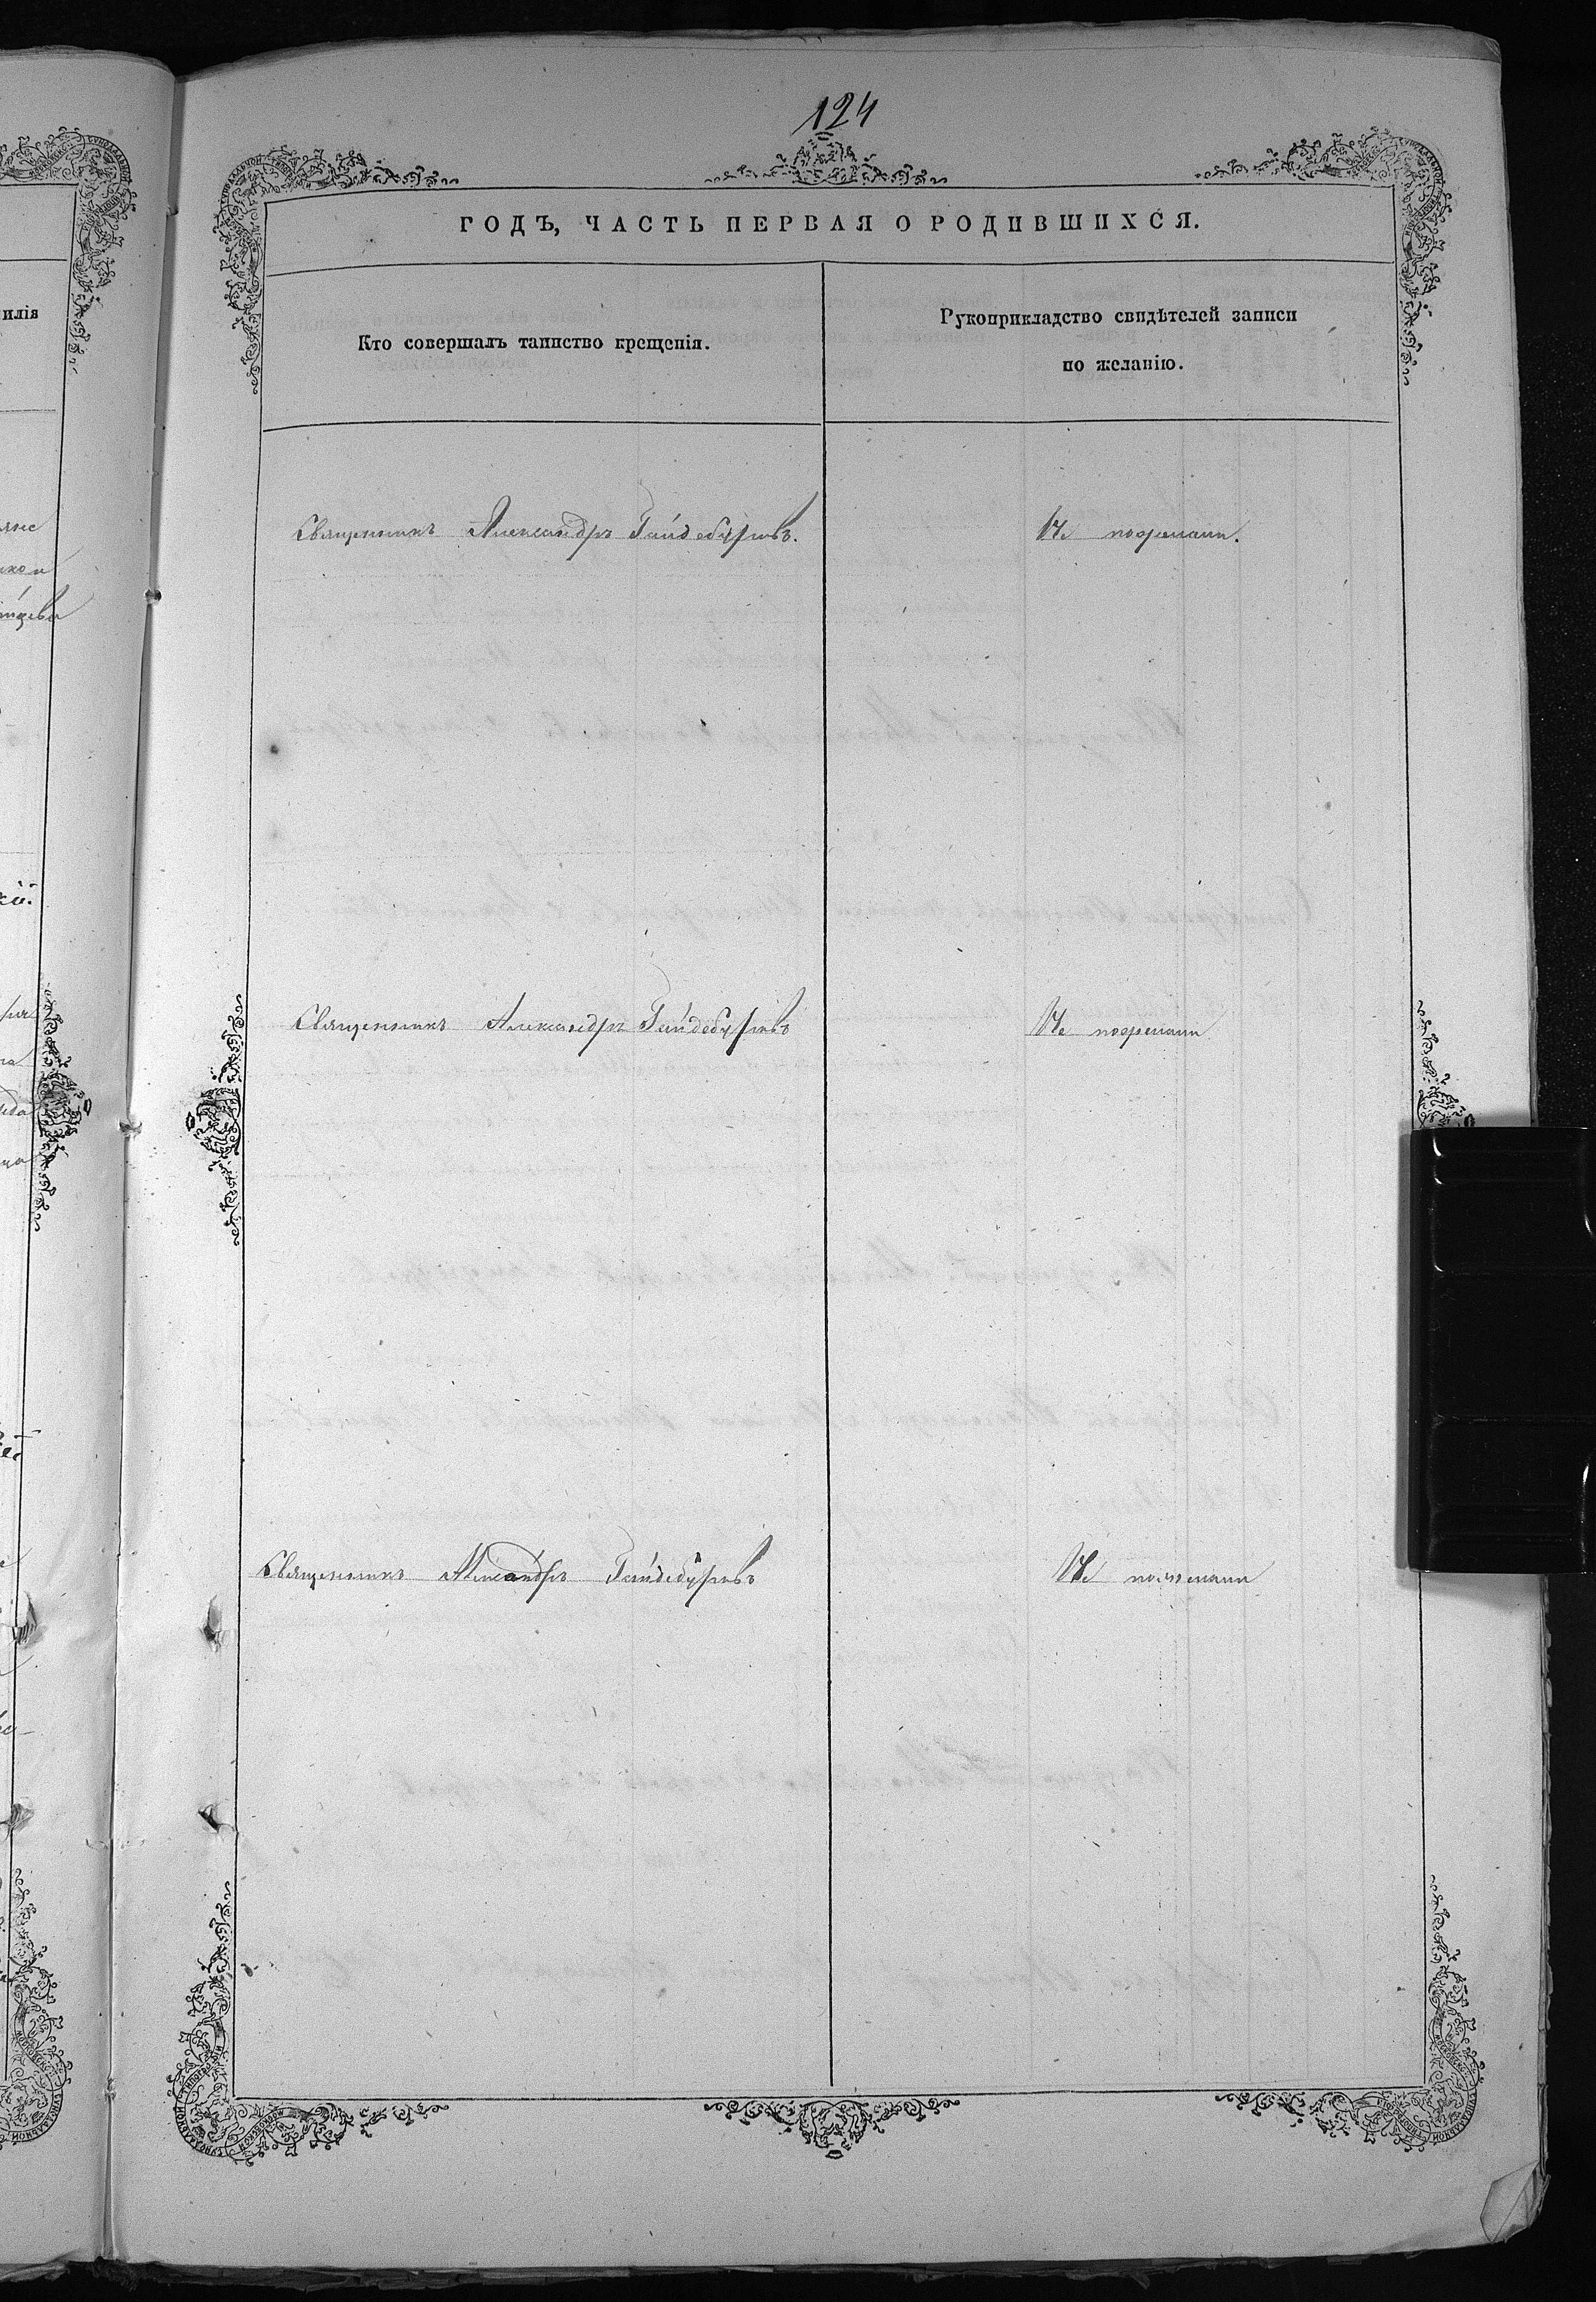 124
ГОДЪ, ЧАСТЬ ПЕРВАЯ О РОДИВШИХСЯ.
илія
Кто совершалъ таинство крещенія.
Рукоприкладство свидѣтелей записи
по желанію.
Священникъ Александръ Гайдебуровъ. Не пожелали.
Священникъ Александръ Гайдебуровъ Не пожелали.
Священникъ Александръ Гайдебуровъ Не пожелали